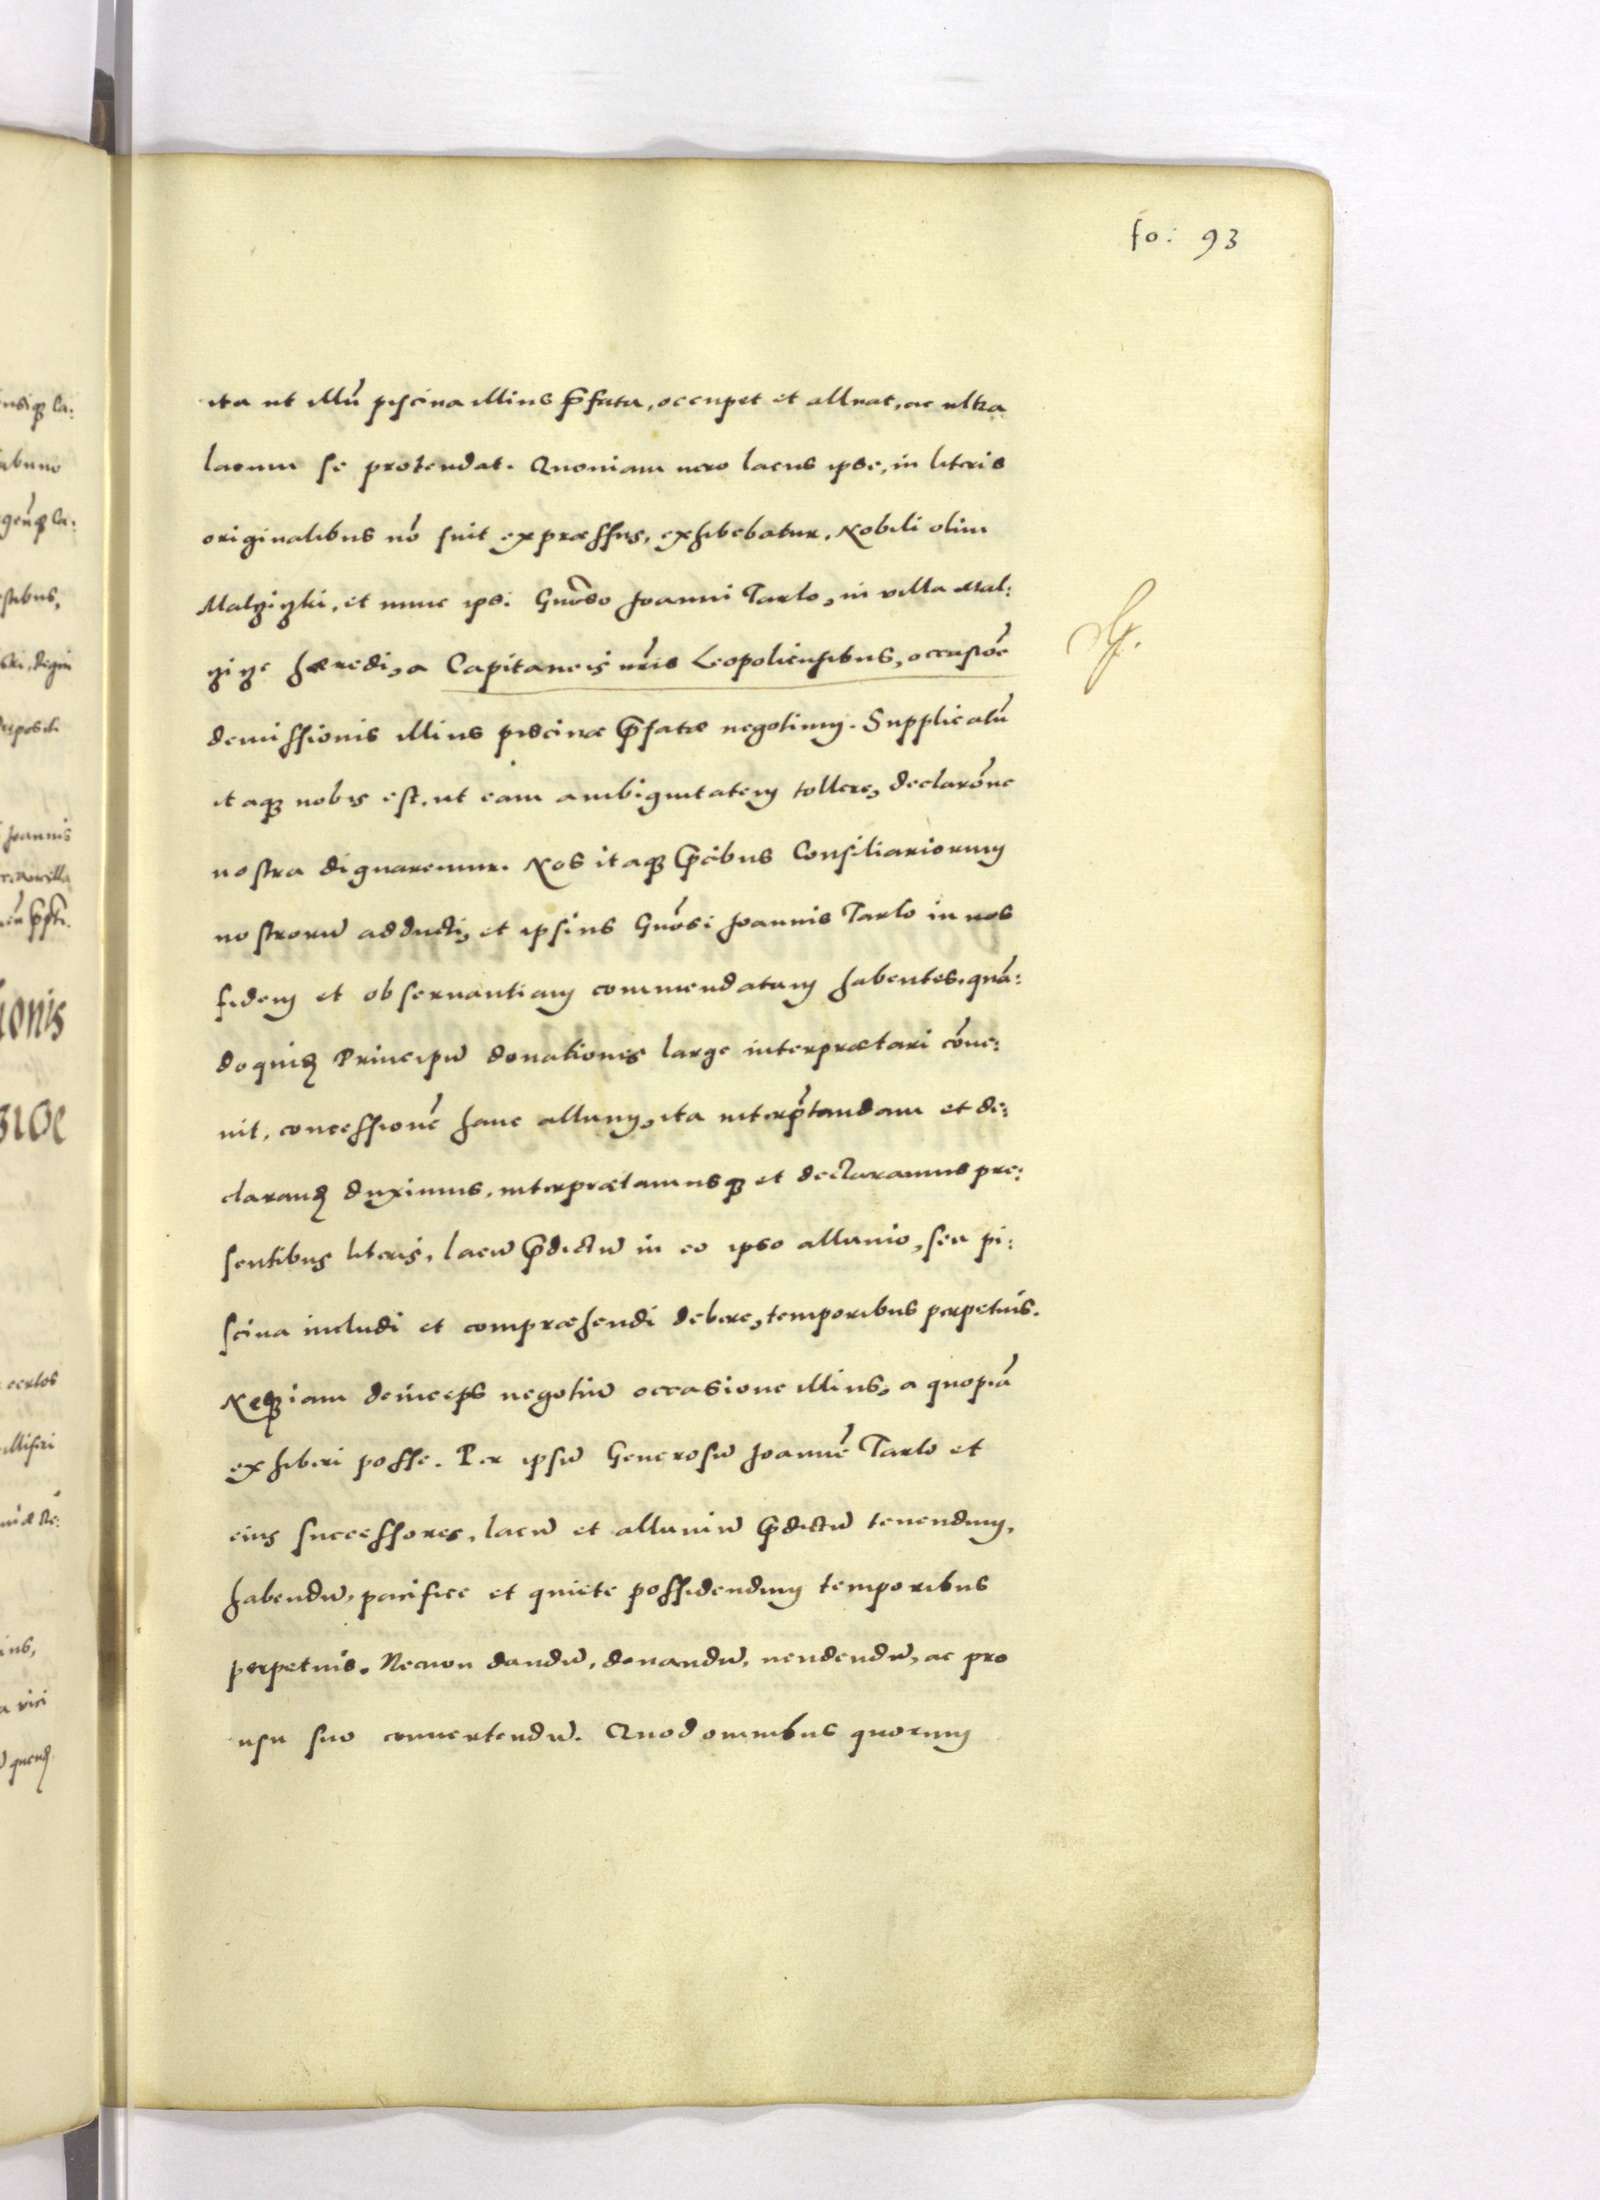 fo: 93
ita ut illũ piscina illius p̃fata, occupet et alluat, ac ultra
lacum se protendat. Quoniam uero lacus ipse, in literis
originalibus nõ fuit expræssus, exhibebatur. Nobili olim
et nunc ipsi Gnõso Joanni Tarlo, in villa Mal:
hæredi, a Capitaneis nr̃is Leopoliensibus, occasiõe
demissionis illius piscinæ p̃fatæ negotium. Supplicatũ
itaq; nobis est, ut eam ambiguitatem tollere, declarõne
nostra dignaremur. Nos itaq; p̃cibus Consiliariorum
nostrorũ adducti, et ipsius Gnõsi Joannis Tarlo in nos
fidem et obseruantiam commendatam habentes, quã:
doquid Principũ donationes large interprætari cõue:
nit, concessionẽ hanc alluuij, ita interp̃tandam et de:
clarand duximus, interprætamusq; et declaramus pre:
sentibus literis, lacũ p̃dictũ in eo ipso alluuio, seu pi:
scina includi et compræhendi debere, temporibus perpetuis.
Neq; iam deinceps negotiũ occasione illius, a quopiã
exhiberi posse. Per ipsũ Generosũ Joannẽ Tarlo et
eius successores, lacũ et alluuiũ p̃dictũ tenendum,
habendũ, pacifice et quiete possidendum temporibus
perpetuis. Necnon dandũ, donandũ, uendendũ, ac pro
usu suo conuertendũ. Quod omnibus quorum